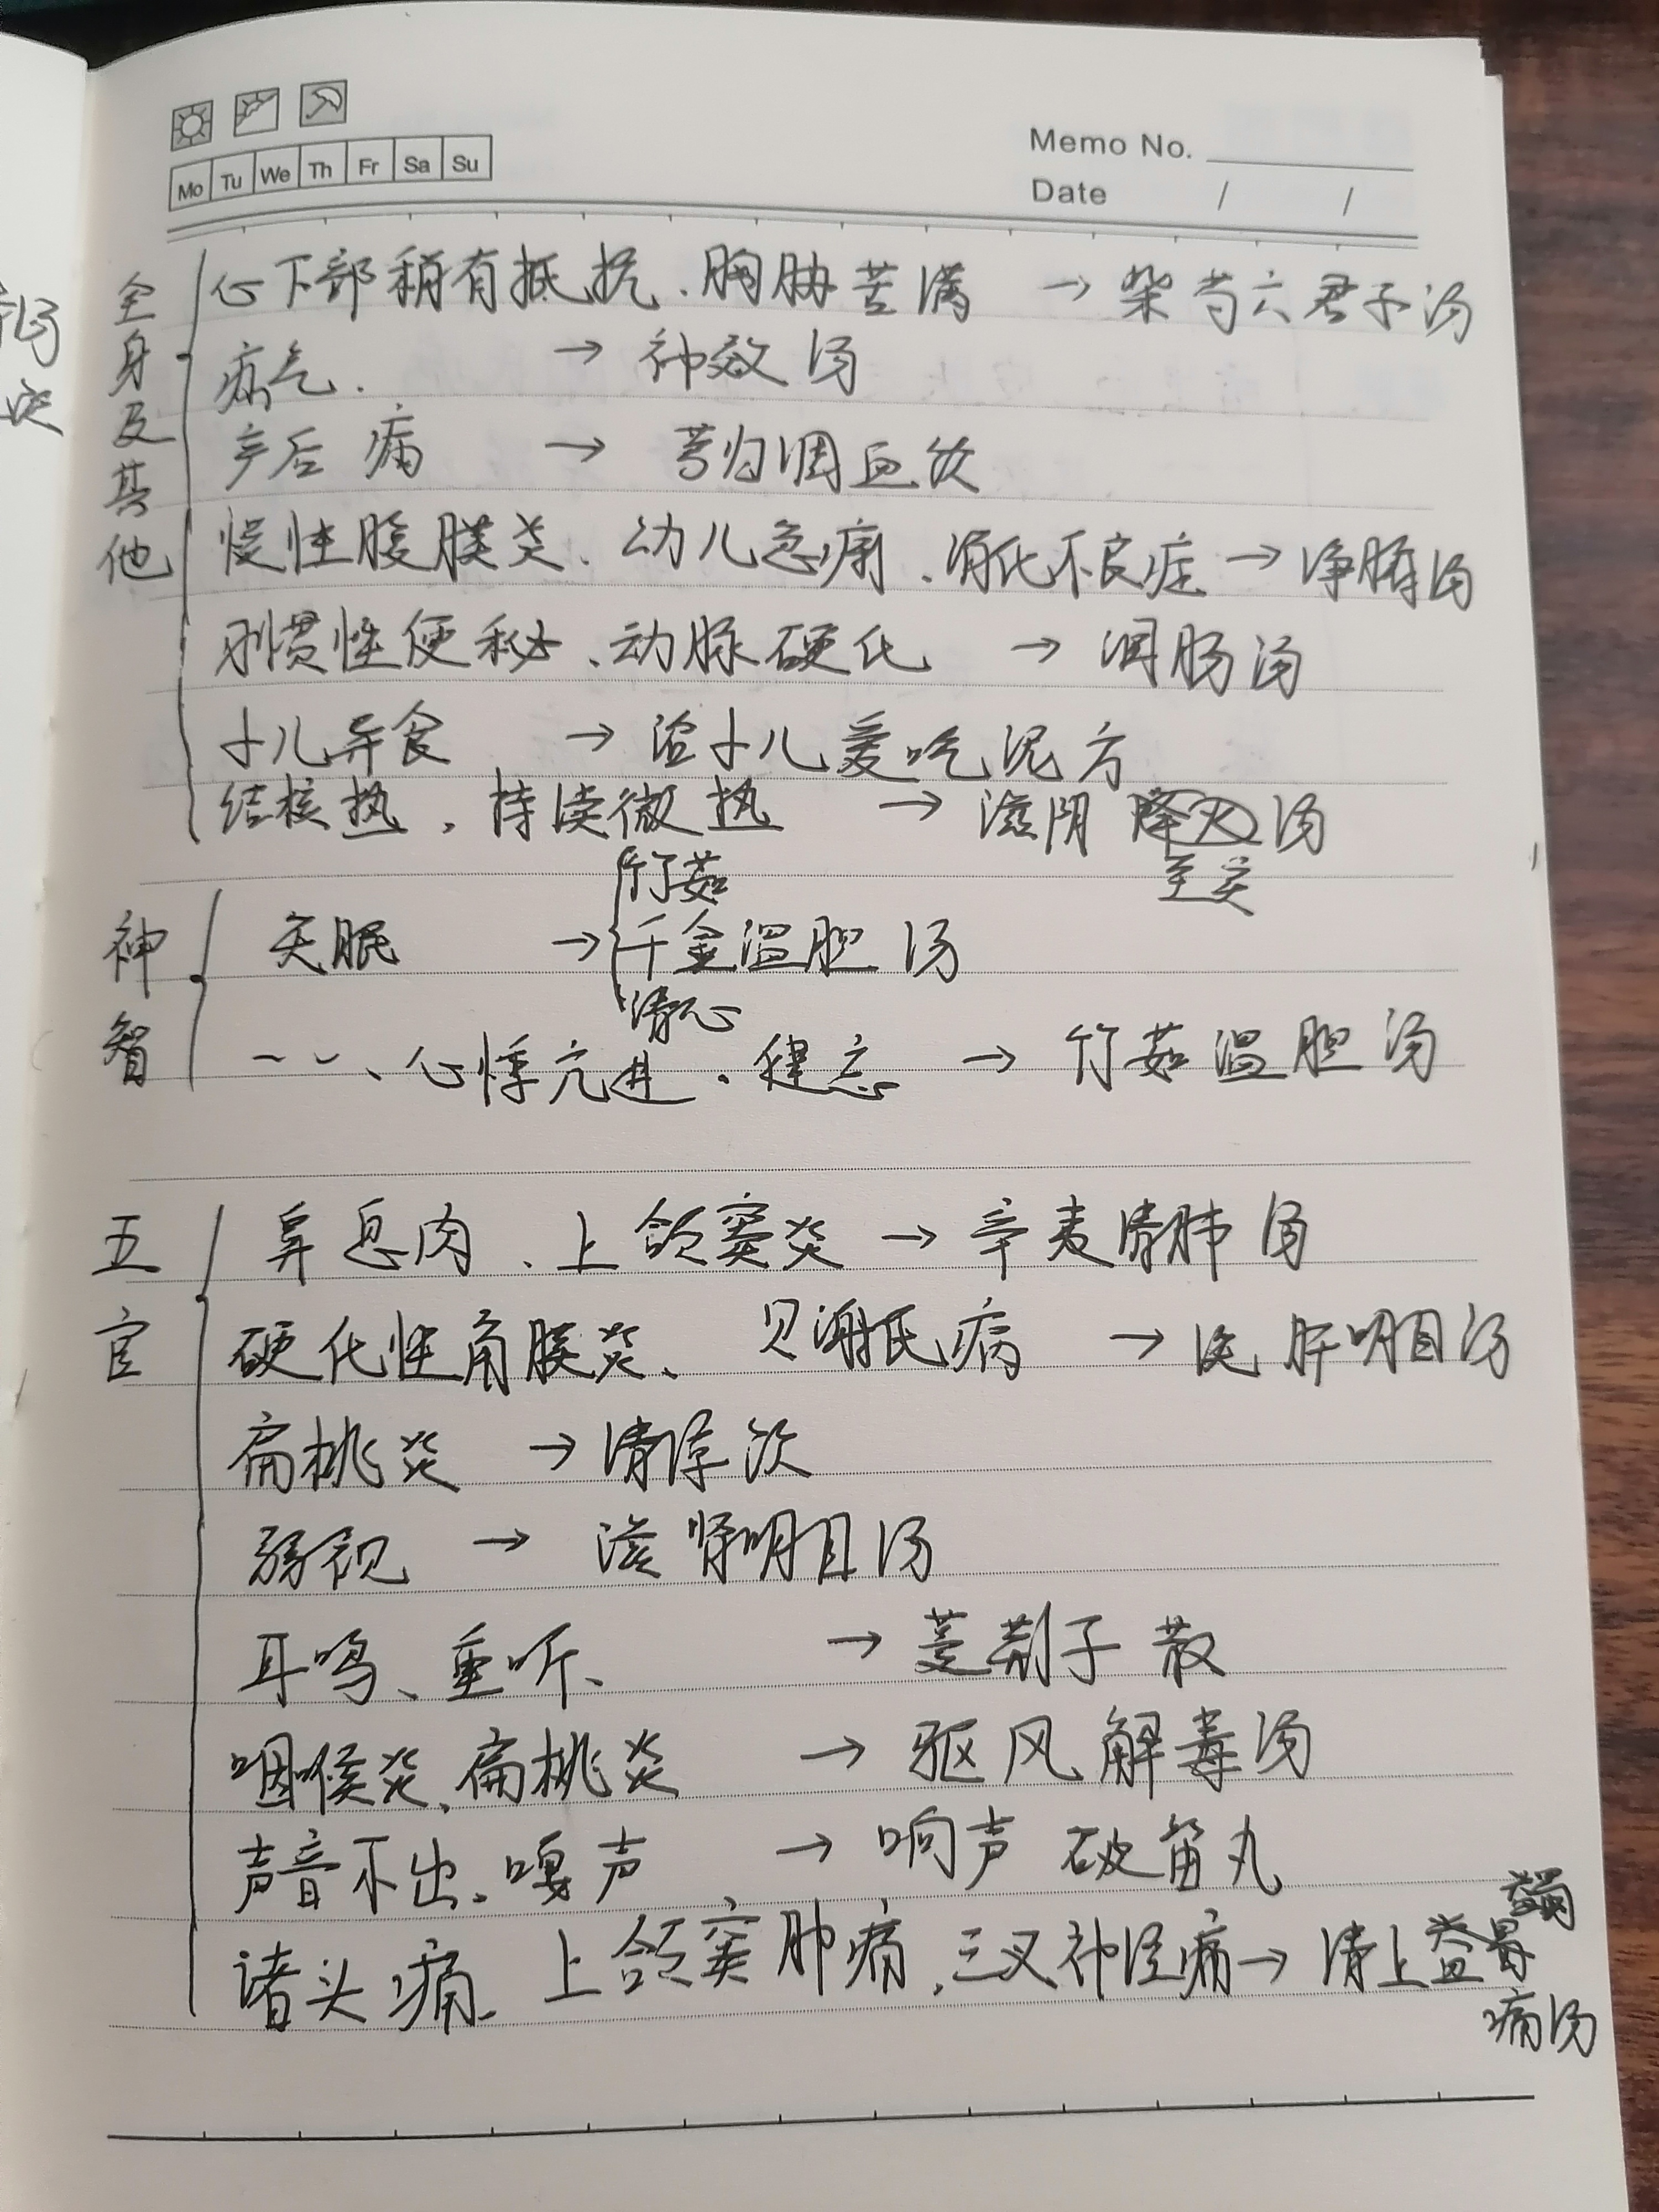 Mo Tu We Th Fr Sa Su
Memo No.
Date / /
全身及其他
心下部稍有抵抗、胸胁苦满 → 柴芍六君子汤
疝气. → 神效汤
产后病 → 芎归调血饮
慢性腹膜炎、幼儿急痫、消化不良症 → 净腑汤
习惯性便秘、动脉硬化 → 润肠汤
小儿异食 → 治小儿爱吃泥方
结核热、持续微热 → 滋阴降火汤
至宝
神智
竹茹
失眠 → 千金温胆汤
清心
〃、心悸亢进、健忘 → 竹茹温胆汤
五官
鼻息肉、上颌窦炎 → 辛夷清肺汤
硬化性角膜炎、贝谢氏病 → 洗肝明目汤
扁桃炎 → 清凉饮
弱视 → 滋肾明目汤
耳鸣、重听、 → 蔓荆子散
咽喉炎、扁桃炎 → 驱风解毒汤
声音不出、嘎声 → 响声破笛丸
诸头痛、上颌窦肿痛、三叉神经痛 → 清上蠲
痛汤